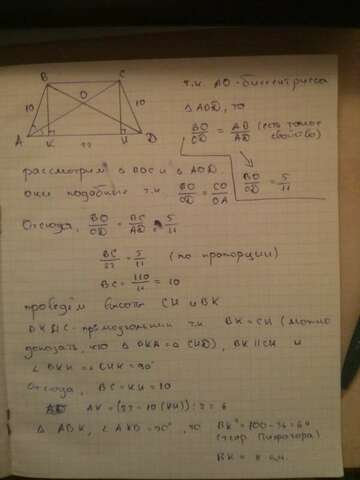 B C
O
10 10
A K 22 H D
т.к. AO - биссектриса
△ AOD, то
BO/OD = AB/AD (есть такое свойство)
BO/OD = 5/11
рассмотрим △ BOC и △ AOD.
они подобные т.к. BO/OD = CO/OA
Отсюда, BO/OD = BC/AD = 5/11
BC/22 = 5/11 (по пропорции)
BC = 110/11 = 10
проведём высоты CH и BK
- прямоугольник т.к. BK = CH (можно
доказать, что △ BKA = △ CHD), BK || CH и
∠ BKH = ∠ CHK = 90°
Отсюда, BC = KH = 10
AK = (22 - 10 (KH)) : 2 = 6
△ ABK, ∠ AKB = 90°, то BK² = 100 - 36 = 64
(теор. Пифагора)
BK = 8 см.